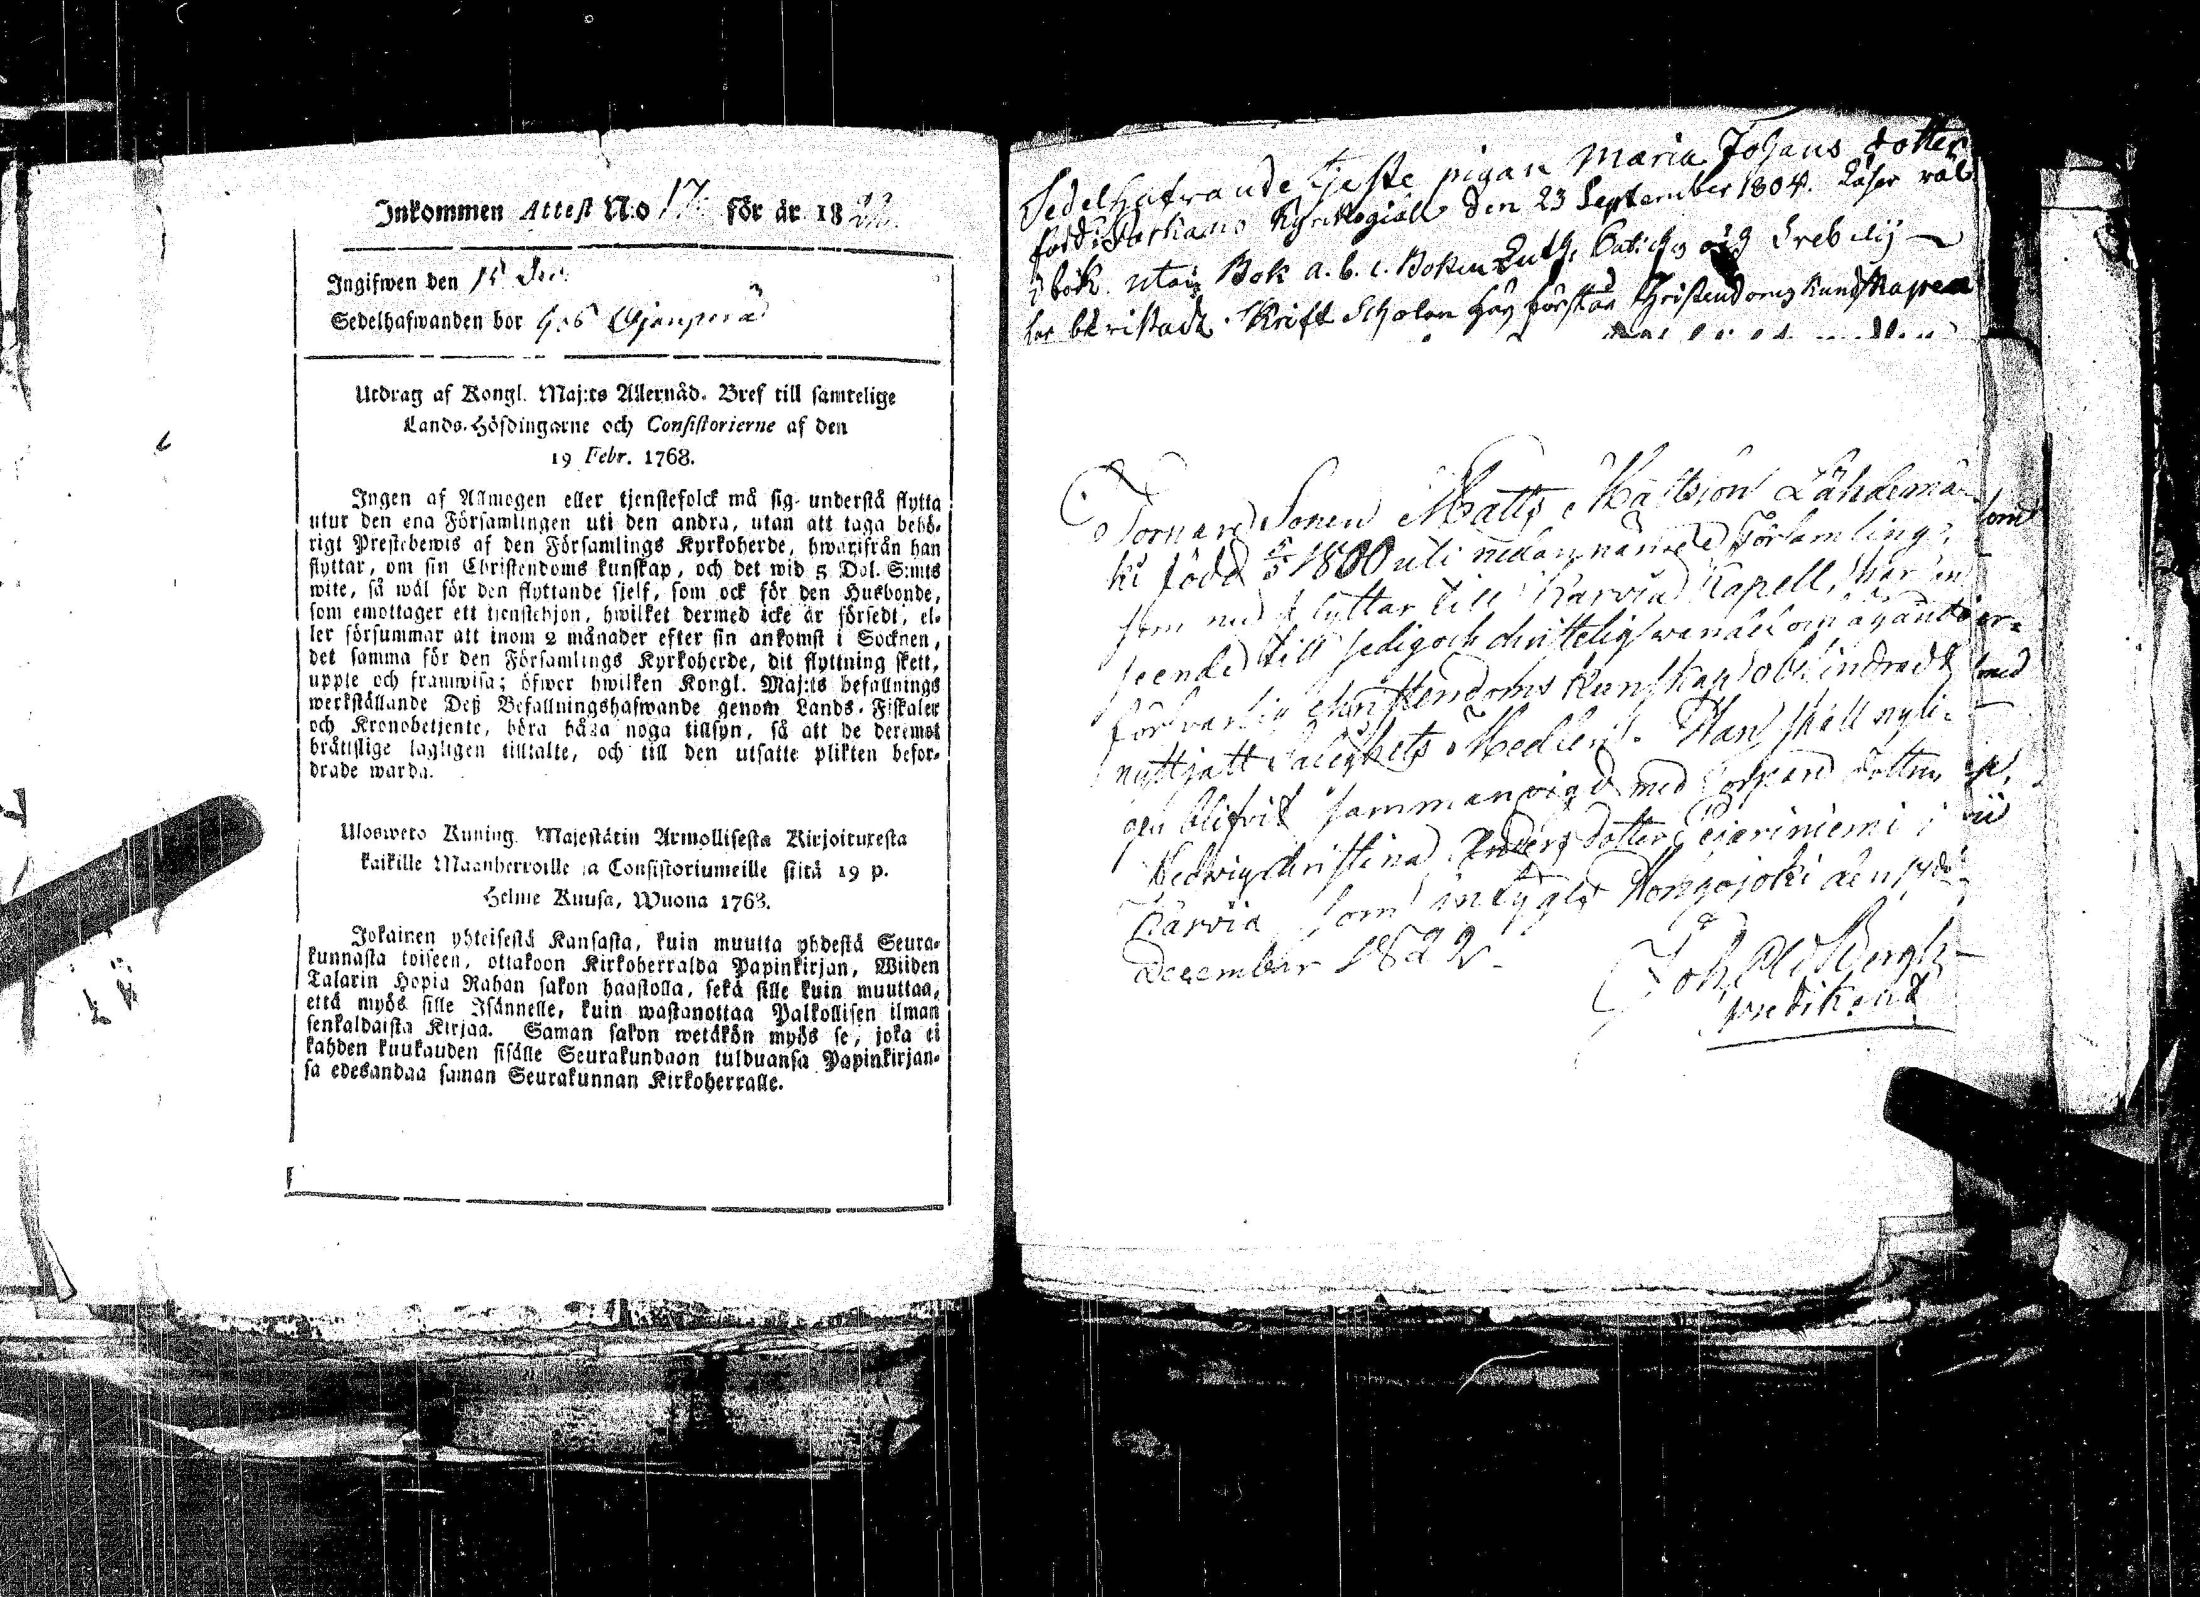 Inkommen Attest N:o 17. för år 1822.
Ingifwen den 15 Dec.
Sedelhafwanden bor hos Ojanperä
Utdrag af Kongl. Maj:ts Allernåd. Bref till samtelige
Lands-Höfdingarne och Consistorierne af den
19 Febr. 1768.
Ingen af Allmogen eller tjenstefolck må sig understå flytta
utur den ena Församlingen uti den andra, utan att taga behö-
rigt Prestebewis af den Församlings Kyrkoherde, hwarifrån han
flyttar, om sin Christendoms kunskap, och det wid 5 Dal. S:mts
wite, så wäl för den flyttande sjelf, som ock för den Husbonde,
som emottager ett tjenstehjon, hwilket dermed icke är försedt, el-
ler försummar att inom 2 månader efter sin ankomst i Socknen,
det samma för den Församlings Kyrkoherde, dit flyttning skett,
upple och framwisa; öfwer hwilken Kongl. Maj:ts befallnings
werkställande Deß Befallningshafwande genom Lands-Fiskaler
och Kronobetjente, böra hålla noga tillsyn, så att de deremot
bråttslige lagligen tilltalte, och till den utsatte plikten befor-
drade warda.
Uloswero Kuning. Majestätin Armollisesta Kirjoituxesta
kaikille Maanherroille ja Consistoriumeille siitä 19 p.
Helme Kuusa, Wuona 1768.
Jokainen yhteisestä Kansasta, kuin muutta yhdestä Seura-
kunnasta toiseen, ottakoon Kirkoherralda Papinkirjan, Wiiden
Talarin Hopia Rahan sakon haastolla, sekä sille kuin muuttaa,
että myös sille Isännelle, kuin wastanottaa Palkollisen ilman
senkaldaista Kirjaa. Saman sakon wetäkön myös se, joka ei
kahden kuukauden sisälle Seurakundaan tulduansa Papinkirjan-
sa edesandaa saman Seurakunnan Kirkoherralle.
Sedelhafvande tjeste pigan Maria Johans dotter
född i Parkano den 23 September 1804. Läser väl
i bok utan Bok a.b.c. Boken Luth.
har bevistadt Skrift Scholan förstår Christendoms Kundskapen
Torpare Sonen Matts Mattsson Lähdemä-
ki född 1800 uti nedannämde Församling,
som nu flyttar till Karvia Kapell, har an-
seende till sedig och christelig vandel om ägande er-
forderlig christendoms Kunskap obehindradt med
nyttjatt Salighets Medlen. Han skall nyli-
gen blifvit sammanvigd med Torpare dottren
Hedvig Christina Anders dotter i
Karvia, som intygas Hongojoki den 14de
December 1822.
Joh.
Predikant